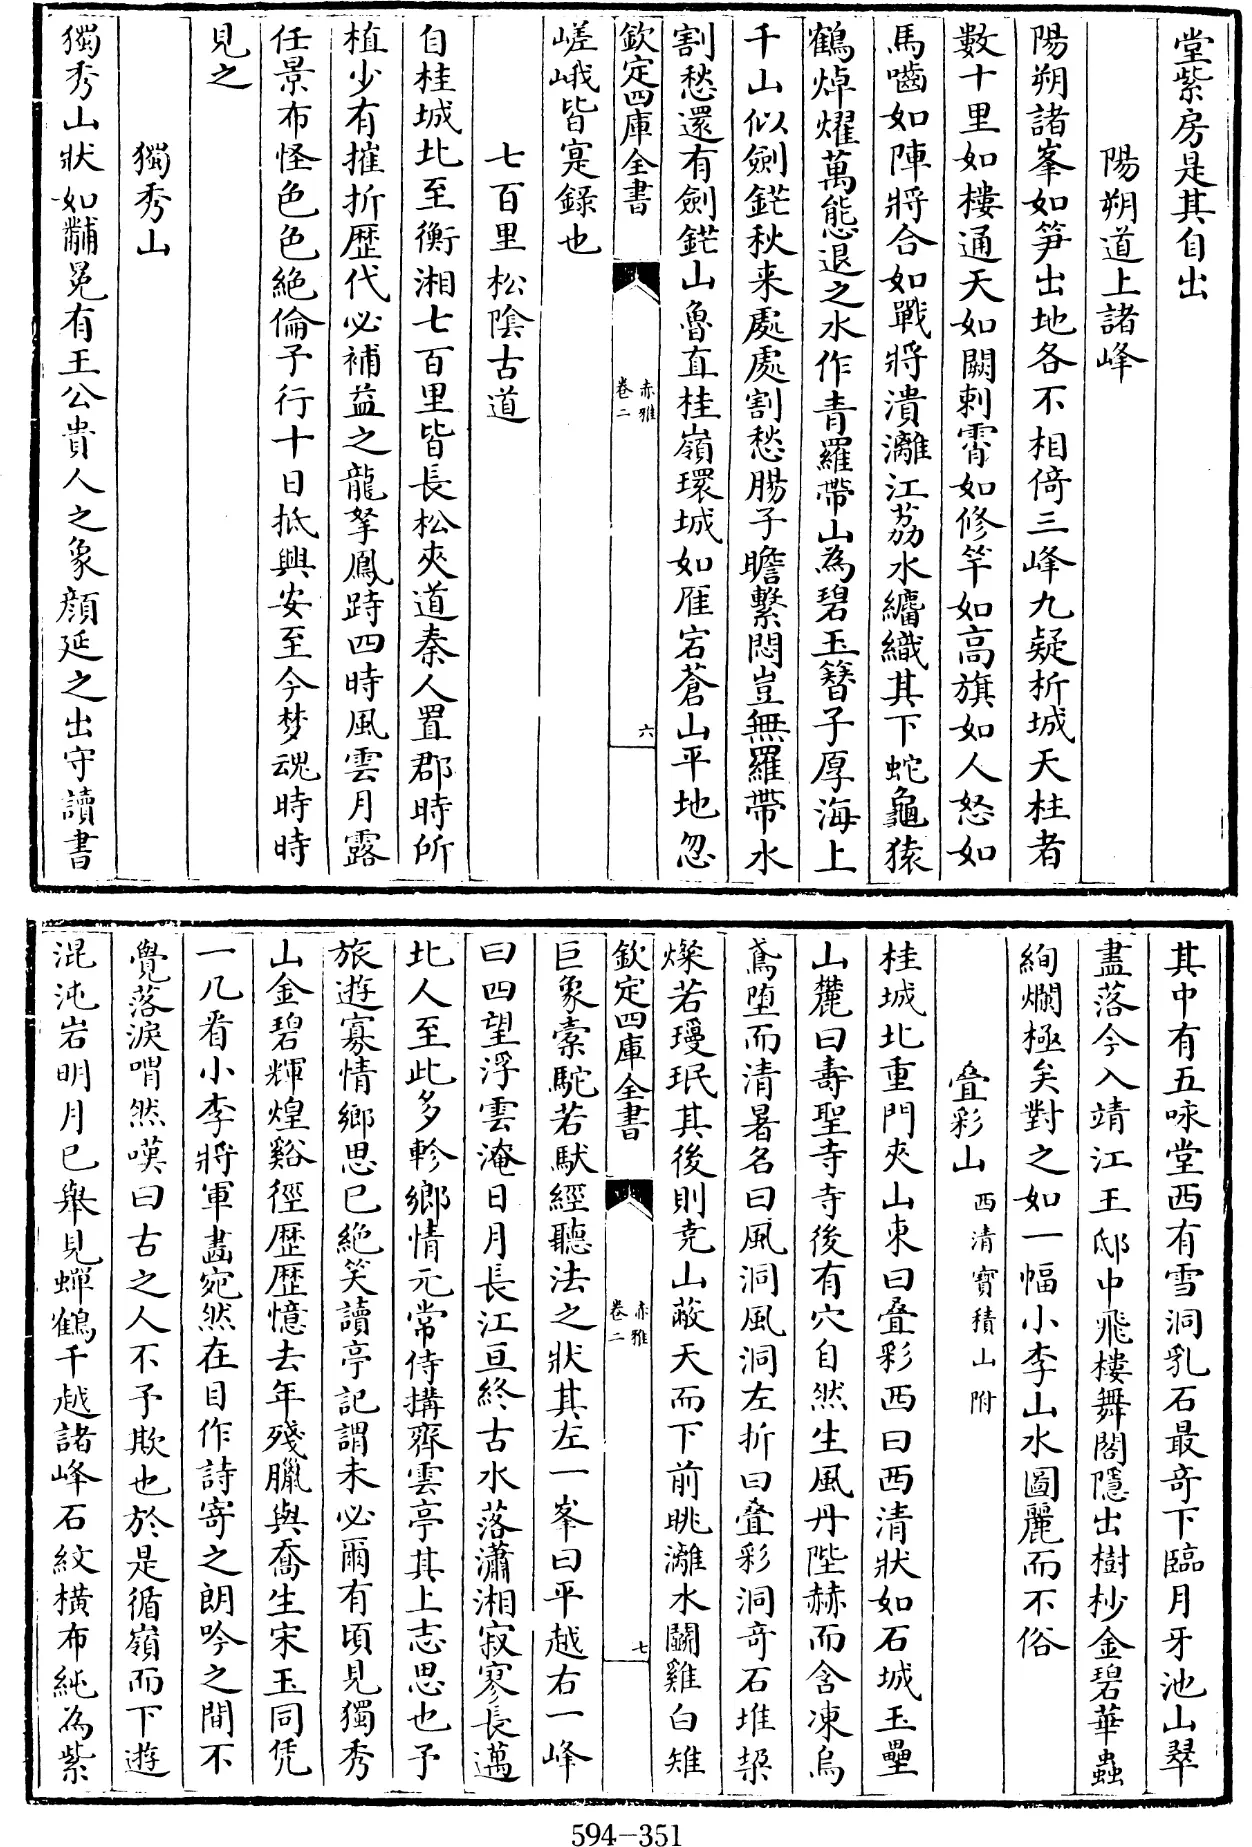 堂紫房是其自出
陽朔道上諸峰
陽朔諸峯如笋出地各不相倚三峰九疑析城天柱者
數十里如樓通天如闕刺霄如修竿如高旗如人怒如
馬嚙如陣將合如戰將潰灕江荔水纏織其下蛇龜猿
鶴焯燿萬態退之水作青羅帶山為碧玉簪子厚海上
千山似劍鋩秋来處處割愁腸子瞻繫悶豈無羅帶水
割愁還有劍鋩山魯直桂嶺環城如雁宕蒼山平地忽
欽定四庫全書
赤雅
卷二
六
嵯峨皆寔錄也
七百里松陰古道
自桂城北至衡湘七百里皆長松夾道秦人置郡時所
植少有摧折歷代必補益之龍拏鳳跱四時風雲月露
任景布怪色色絕倫子行十日抵興安至今梦魂時時
見之
獨秀山
獨秀山狀如黼冕有王公貴人之象顔延之出守讀書
其中有五咏堂西有雪洞乳石最奇下臨月牙池山翠
盡落今入靖江王邸中飛樓舞閣隱出樹杪金碧華蟲
絢爛極矣對之如一幅小李山水圖麗而不俗
叠彩山 西清寶積山附
桂城北重門夾山東曰叠彩西曰西清狀如石城玉壘
山麓曰壽聖寺寺後有穴自然生風丹陛赫而含凍烏
鳶堕而清暑名曰風洞風洞左折曰叠彩洞奇石堆絜
燦若璦珉其後則尭山蔽天而下前眺灕水鬬雞白雉
欽定四庫全書
赤雅
卷二
七
巨象橐駝若馱經聽法之狀其左一峯曰平越右一峰
曰四望浮雲淹日月長江亘終古水落瀟湘寂寥長邁
北人至此多軫鄉情元常侍搆齊雲亭其上志思也予
旅遊寡情鄉思已絕笑讀亭記謂未必爾有頃見獨秀
山金碧輝煌谿徑歷歷憶去年殘臘與喬生宋玉同凭
一几看小李將軍畵宛然在目作詩寄之朗吟之間不
覺落淚喟然嘆曰古之人不予欺也於是循嶺而下遊
混沌岩明月已舉見蟬鶴千越諸峰石紋横布純為紫
594-351